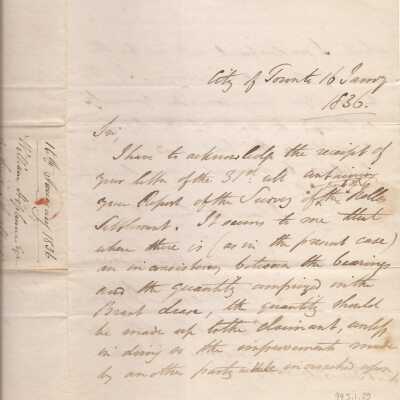 City of Toronto 16 Janry
1836.
Sir,
I have to acknowledge the receipt of
your letter of the 31st ult containing
your Report of the Survey of the
Settlement. It seems to me that
where there is (as in the present case)
an inconsistency between the bearings
and the quantity comprised in the
Brant lease, the quantity should
be made up to the claimant, unless
in doing so the improvements made
by another party be encroached upon,
16th January 1836
William